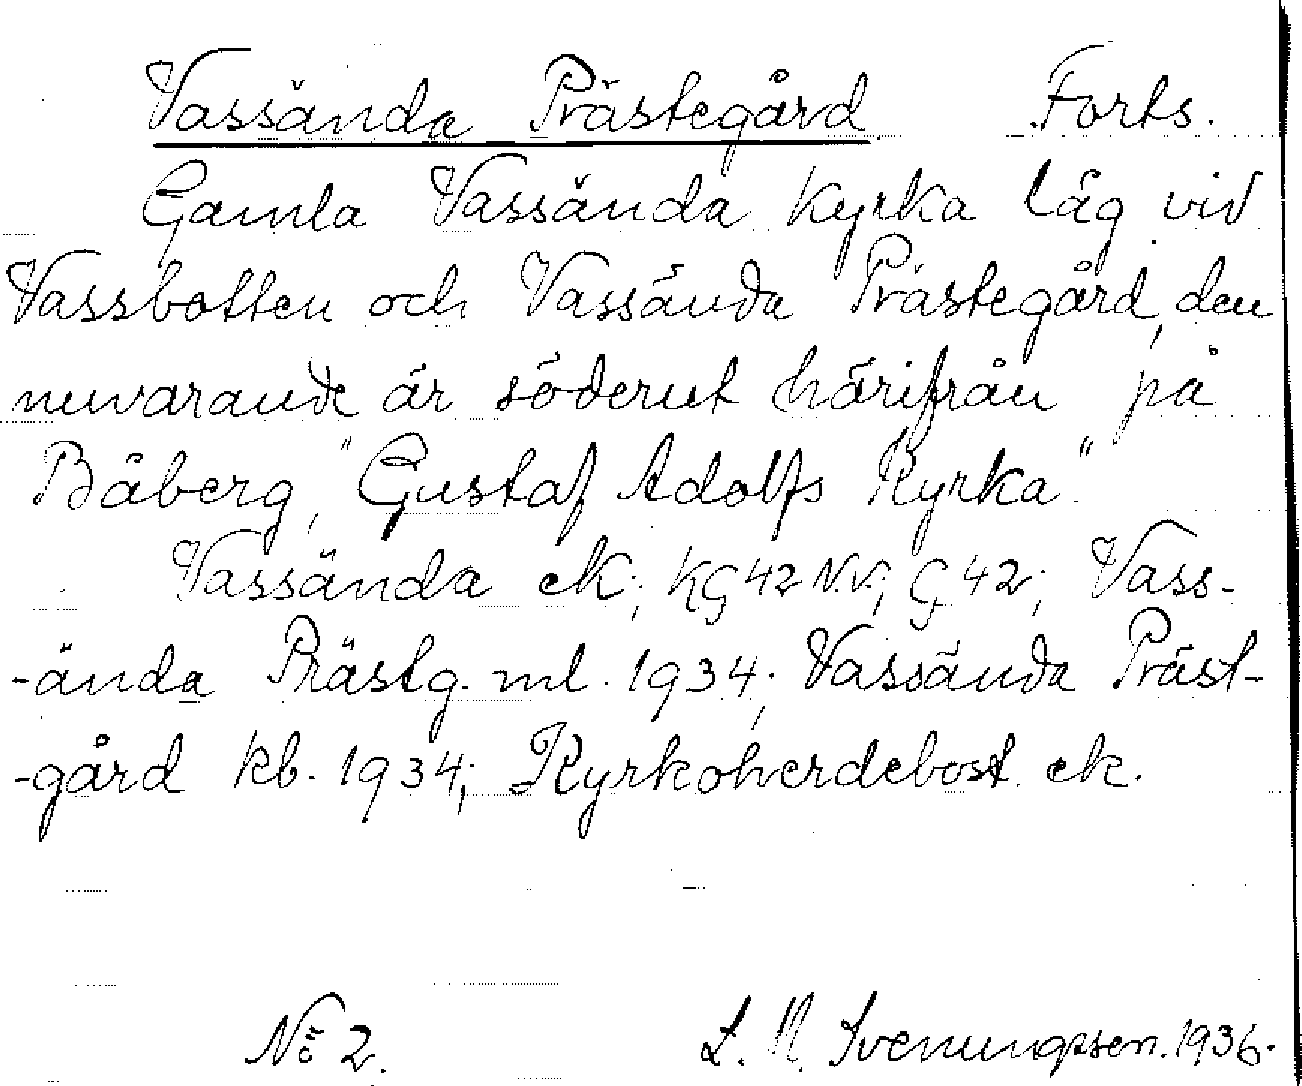 Vassända Prästegård Forts.
Gamla Vassända Kyrka låg vid
Vassbotten och Vassända Prästegård, den
nuvarande är söderut härifrån på
Båberg, "Gustaf Adolfs Kyrka".
Vassända ek; KG 42 N.V.; G 42; Vass-
-ända Prästg. ml. 1934; Vassända Präst-
-gård kb. 1934; Kyrkoherdebost. ek.
No 2. L. M. Svenungsson. 1936.